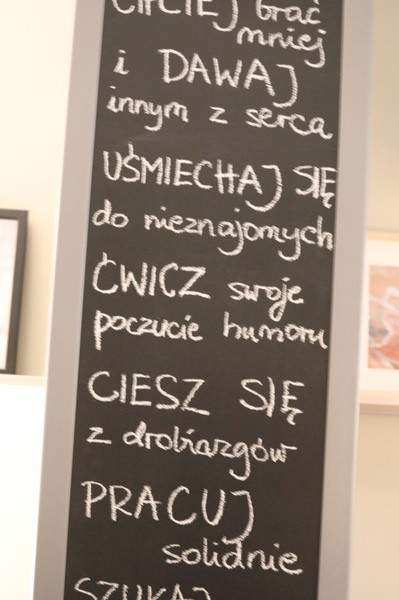 CHCIEJ brać
mniej
i DAWAJ
innym z serca
UŚMIECHAJ SIĘ
do nieznajomych
ĆWICZ swoje
poczucie humoru
CIESZ SIĘ
z drobiazgów
PRACUJ
solidnie
SZUKAJ